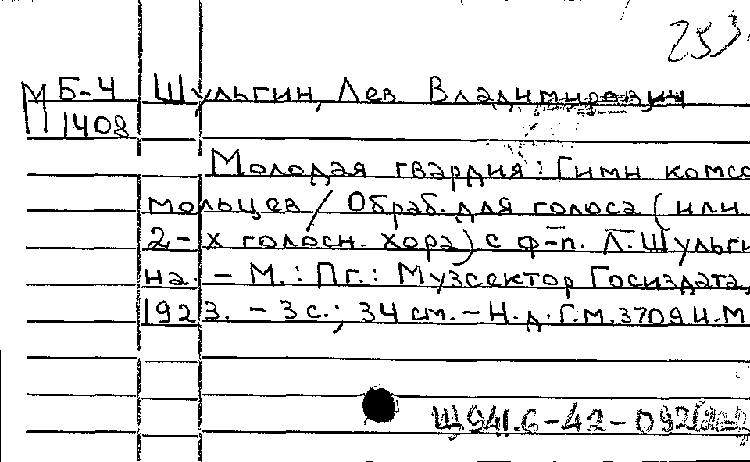 253
М Б-4 Шульгин, Лев Владимирович
П 1408
Молодая гвардия: Гимн комсо
мольцев / Обраб. для голоса (или
2-х голосн. хора) с ф-п. Л. Шульги
на. - М.: Пг.: Музсектор Госиздата,
1923. - 3 с.; 34 см. - Н.д. Г.М. 3709 Н.М
Щ941.6-42-092